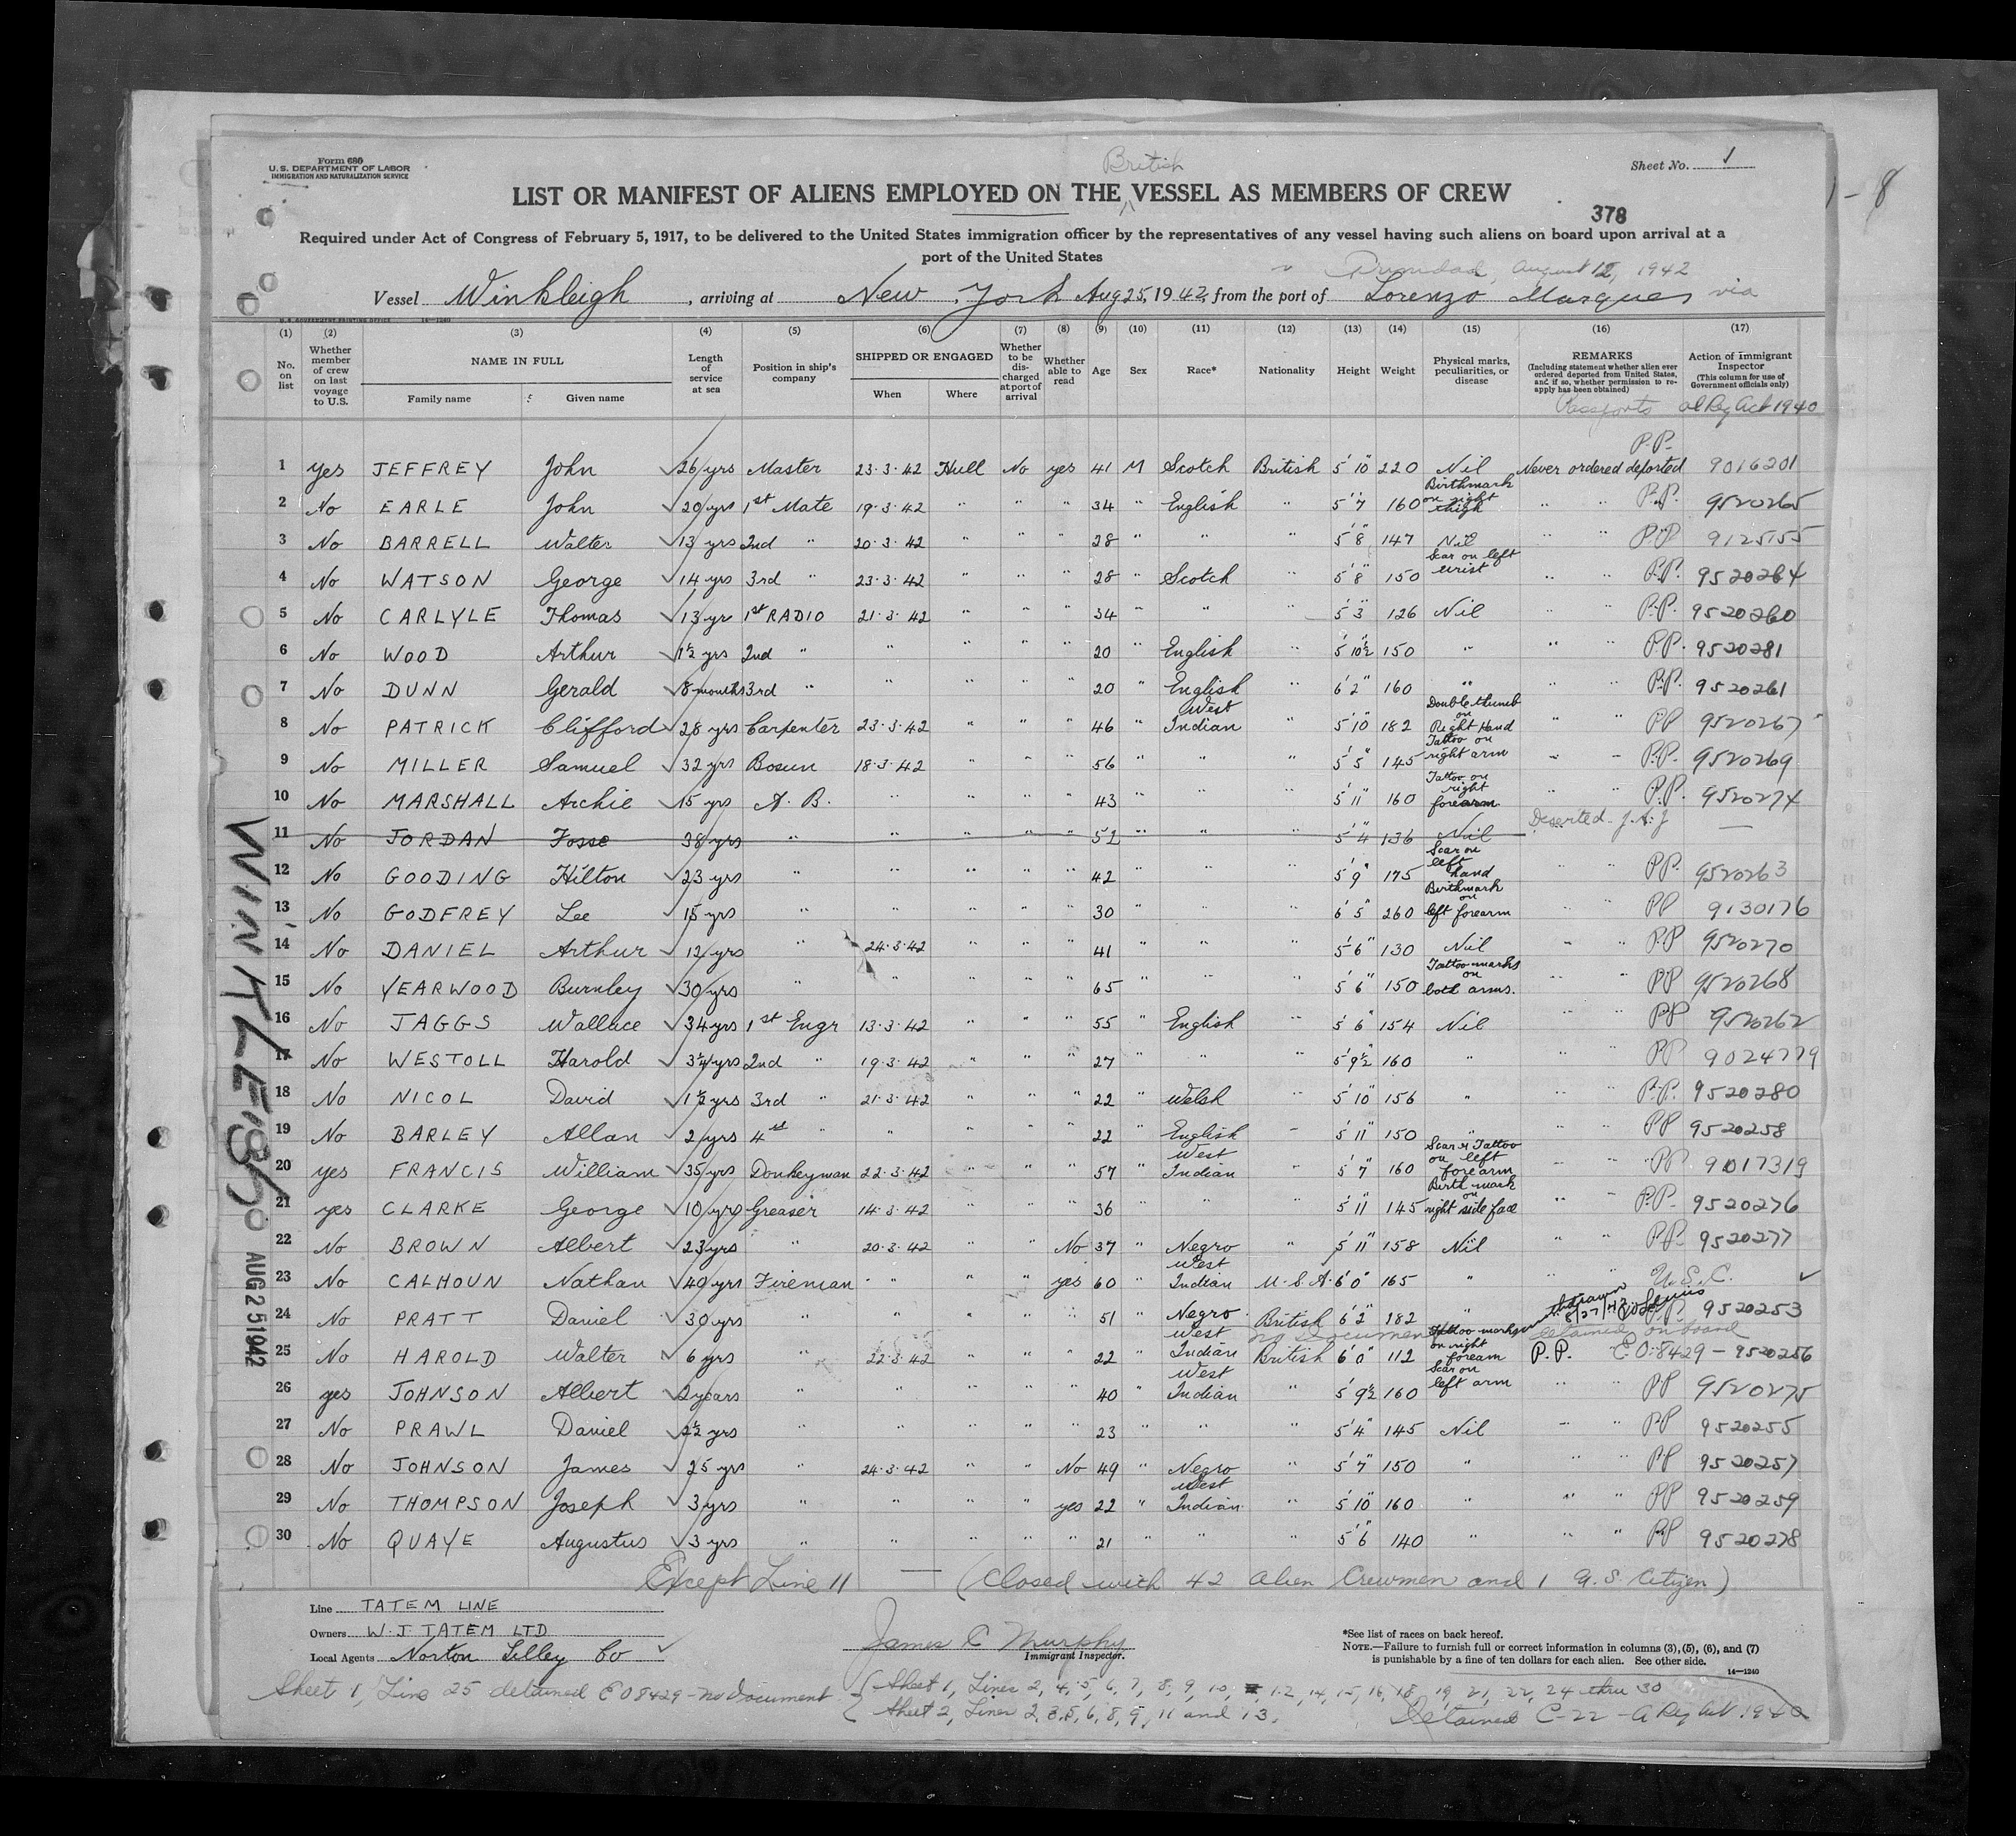 Form 680
U.S. DEPARTMENT OF LABOR
IMMIGRATION AND NATURALIZATION SERVICE
Sheet No. 1
British
LIST OR MANIFEST OF ALIENS EMPLOYED ON THE VESSEL AS MEMBERS OF CREW
1 - 8
378
Required under Act of Congress of February 5, 1917, to be delivered to the United States immigration officer by the representatives of any vessel having such aliens on board upon arrival at a
port of the United States
Trinidad, August 12, 1942
Vessel Winkleigh, arriving at New York Aug 25, 1942, from the port of Lorenzo Marques via
U. S. GOVERNMENT PRINTING OFFICE 14—1240
(1) (2) (3) (4) (5) (6) (7) (8) (9) (10) (11) (12) (13) (14) (15) (16) (17)
No. on list
Whether member of crew on last voyage to U.S.
NAME IN FULL
Family name Given name
Length of service at sea
Position in ship's company
SHIPPED OR ENGAGED
When Where
Whether to be discharged at port of arrival
Whether able to read
Age Sex Race* Nationality Height Weight
Physical marks, peculiarities, or disease
REMARKS
(Including statement whether alien ever ordered deported from United States, and if so, whether permission to reapply has been obtained)
Action of Immigrant Inspector
(This column for use of Government officials only)
Passports al Reg Act 1940
1 yes JEFFREY John 26 yrs Master 23·3·42 Hull No yes 41 M Scotch British 5'10" 220 Nil Never ordered deported P.P. 9016201
2 No EARLE John 20 yrs 1st Mate 19·3·42 " " " 34 " English " 5'7" 160 Birthmark on right thigh " " P.P. 9520265
3 No BARRELL Walter 13 yrs 2nd " 20·3·42 " " " 28 " " " 5'8" 147 Nil " " P.P 9125155
4 No WATSON George 14 yrs 3rd " 23·3·42 " " " 28 " Scotch " 5'8" 150 Scar on left wrist " " P.P. 9520264
5 No CARLYLE Thomas 13 yr 1st RADIO 21·3·42 " " " 34 " " " 5'3" 126 Nil " " P.P. 9520260
6 No WOOD Arthur 1½ yrs 2nd " " " " " 20 " English " 5'10½" 150 " " " P.P. 9520281
7 No DUNN Gerald 8 months 3rd " " " " " 20 " English " 6'2" 160 " " " P.P. 9520261
8 No PATRICK Clifford 28 yrs Carpenter 23·3·42 " " " 46 " West Indian " 5'10" 182 Double thumb on Right Hand " " PP 9520267
9 No MILLER Samuel 32 yrs Bosun 18·3·42 " " " 56 " " " 5'5" 145 Tattoo on right arm " " P.P. 9520269
10 No MARSHALL Archie 15 yrs A. B. " " " " 43 " " " 5'11" 160 Tattoo on right forearm " " P.P. 9520274
11 No JORDAN Fosse 38 yrs " " " " " 52 " " " 5'4" 136 Nil Deserted - J.A.J —
12 No GOODING Hilton 23 yrs " " " " " 42 " " " 5'9" 175 Scar on left hand " " PP. 9520263
13 No GODFREY Lee 15 yrs " " " " " 30 " " " 6'5" 260 Birthmark on left forearm " " PP 9130176
14 No DANIEL Arthur 12 yrs " 24·3·42 " " " 41 " " " 5'6" 130 Nil " " P.P 9520270
15 No YEARWOOD Burnley 30 yrs " " " " " 65 " " " 5'6" 150 Tattoo marks on both arms. " " PP 9520268
16 No JAGGS Wallace 34 yrs 1st Engr 13·3·42 " " " 55 " English " 5'6" 154 Nil " " PP 9520262
17 No WESTOLL Harold 3¼ yrs 2nd " 19·3·42 " " " 27 " " " 5'9½" 160 " " " PP 9024779
18 No NICOL David 1½ yrs 3rd " 21·3·42 " " " 22 " Welsh " 5'10" 156 " " " P.P. 9520280
19 No BARLEY Allan 2 yrs 4st " " " " " 22 " English " 5'11" 150 " " " PP 9520258
20 yes FRANCIS William 35 yrs Donkeyman 22·3·42 " " " 57 " West Indian " 5'7" 160 Scar & Tattoo on left forearm " " PP 9017319
21 yes CLARKE George 10 yrs Greaser 14·3·42 " " " 36 " " " 5'11" 145 Birth mark on right side face " " P.P. 9520276
22 No BROWN Albert 23 yrs " 20·3·42 " " No 37 " Negro " 5'11" 158 Nil " " PP. 9520277
23 No CALHOUN Nathan 40 yrs Fireman " " " yes 60 " West Indian U.S.A. 6'0" 165 " " " U.S.C.
24 No PRATT Daniel 30 yrs " " " " " 51 " Negro British 6'2" 182 " " P.P. 9520253
withdrawn 8/27/42
no document detained on board
25 No HAROLD Walter 6 yrs " 22·3·42 " " " 22 " West Indian British 6'0" 112 Tattoo marks on right foream P.P. EO.8429 - 9520256
26 yes JOHNSON Albert 2 years " " " " " 40 " West Indian " 5'9½" 160 Scar on left arm " " PP 9520275
27 No PRAWL Daniel 2½ yrs " " " " " 23 " " " 5'4" 145 Nil " " PP 9520255
28 No JOHNSON James 25 yrs " 24·3·42 " " No 49 " Negro " 5'7" 150 " " " PP 9520257
29 No THOMPSON Joseph 3 yrs " " " " yes 22 " West Indian " 5'10" 160 " " " PP 9520259
30 No QUAYE Augustus 3 yrs " " " " " 21 " " " 5'6" 140 " " " PP 9520278
Except Line 11 — (Closed with 42 alien Crewmen and 1 U.S. Citizen)
WINKLEIGH
AUG 25 1942
Line TATEM LINE
Owners W. J TATEM LTD
Local Agents Norton Lilley Co
James C. Murphy
Immigrant Inspector.
*See list of races on back hereof.
NOTE.—Failure to furnish full or correct information in columns (3), (5), (6), and (7)
is punishable by a fine of ten dollars for each alien. See other side.
14—1240
Sheet 1, Line 25 detained EO 8429 - no Document
Sheet 1, Lines 2, 4, 5, 6, 7, 8, 9, 10, 12, 14, 15, 16, 18, 19, 21, 22, 24 thru 30
Sheet 2, Lines 2, 3, 5, 6, 8, 9, 11 and 13.
Detained C-22 - A Reg Act. 1940